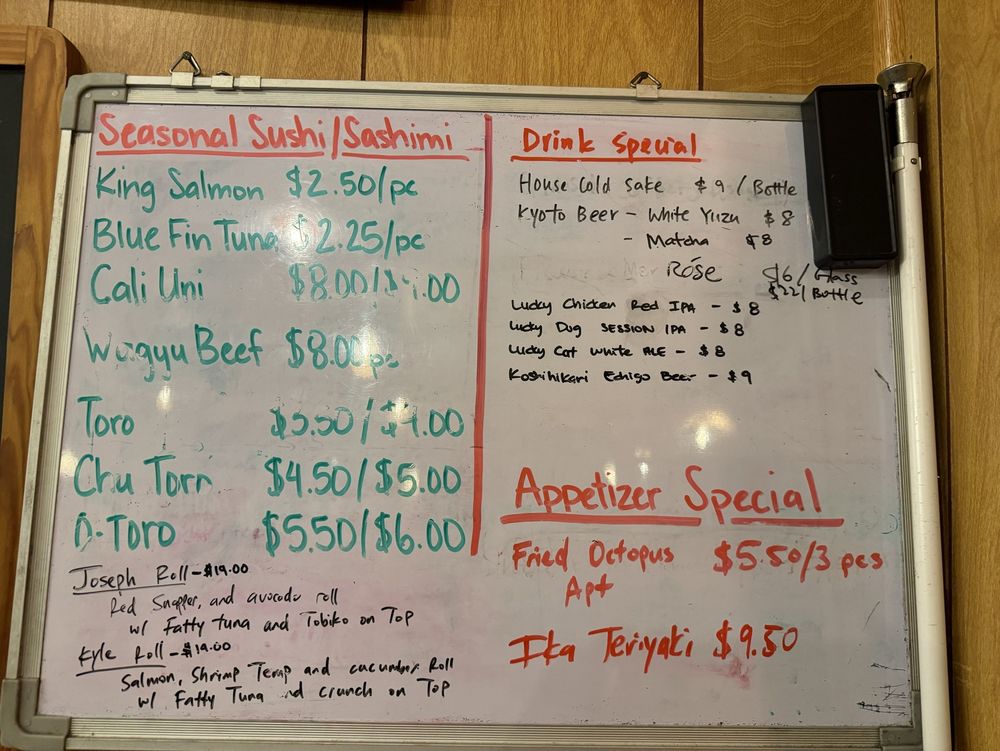 Seasonal Sushi/Sashimi
King Salmon $2.50/pc
Blue Fin Tuna $2.25/pc
Cali Uni $8.00/
Wagyu Beef $8.00 pc
Toro
Chu Toro $4.50/$5.00
O-Toro $5.50/$6.00
Joseph Roll - $19.00
Red Snapper, and avocado roll
w/ Fatty tuna and Tobiko on Top
Kyle Roll - $19.00
Salmon, Shrimp Temp and cucumber Roll
w/ Fatty Tuna and crunch on Top
Drink Special
House Cold Sake $9/Bottle
Kyoto Beer - White Yuzu $8
- Matcha $8
Róse $6/Glass
$22/Bottle
Lucky Chicken Red IPA - $8
Lucky Dog SESSION IPA - $8
Lucky Cat White ALE - $8
Koshihikari Echigo Beer - $9
Appetizer Special
Fried Octopus $5.50/3 pcs
Apt
Ika Teriyaki $9.50